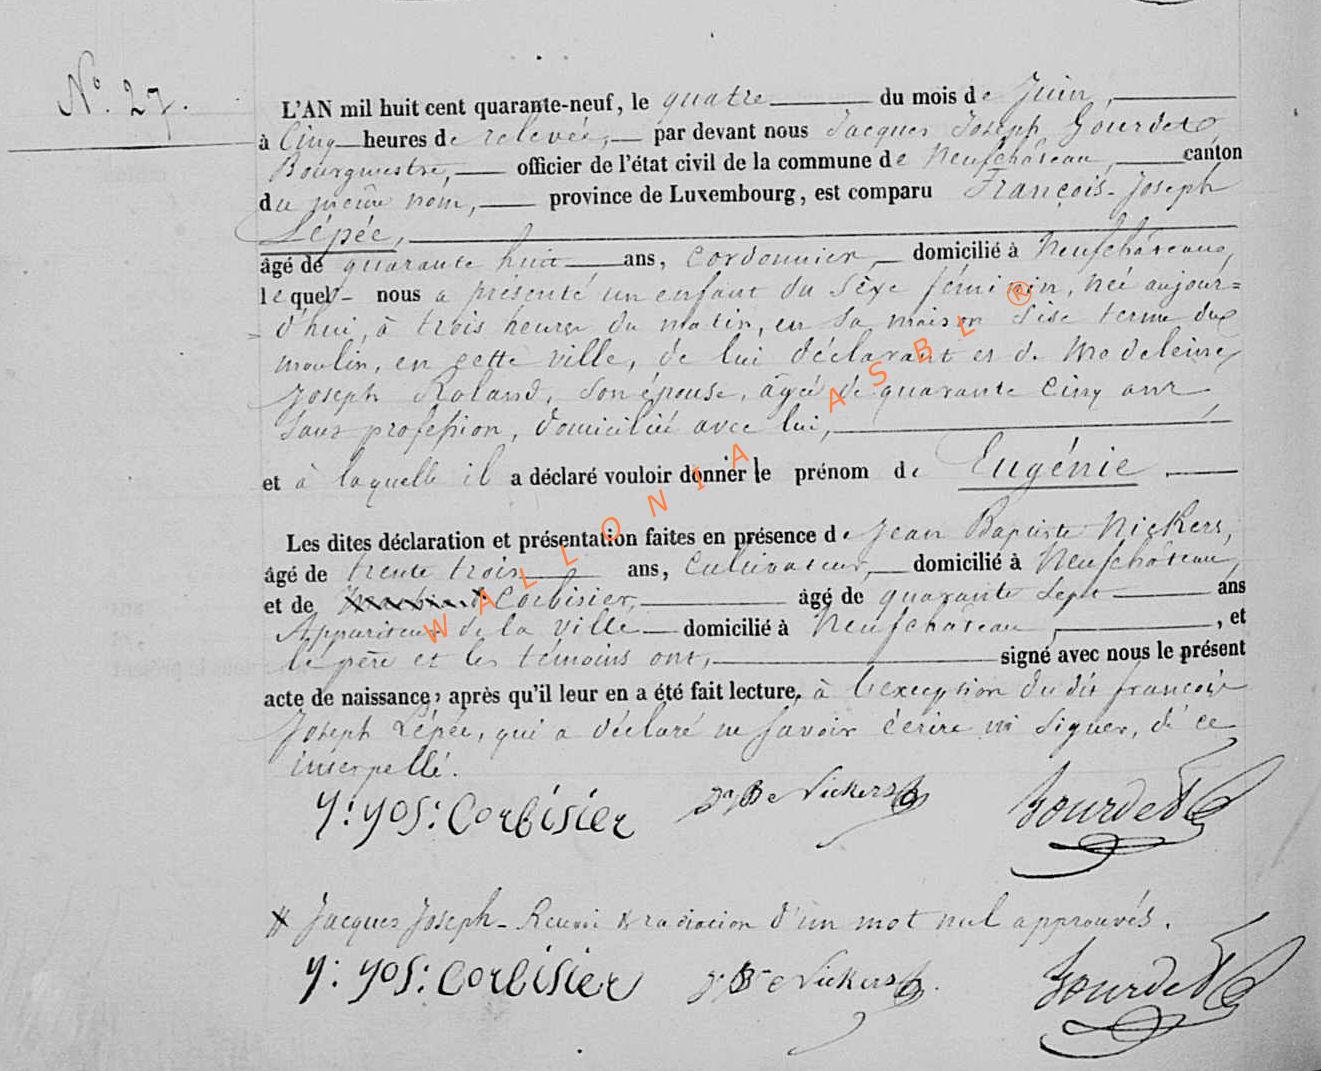 N° 27.
L'AN mil huit cent quarante-neuf, le quatre du mois de Juin,
à Cinq heures de relevée, par devant nous Jacques Joseph Gourdet,
Bourgmestre, officier de l'état civil de la commune de Neufchâteau, canton
du même nom, province de Luxembourg, est comparu François-Joseph
Lépée,
âgé de quarante huit ans, Cordonnier, domicilié à Neufchâteau,
lequel nous a présenté un enfant du sexe féminin, née aujour=
=d'hui, à trois heures du matin, en sa maison sise terme du
moulin, en cette ville, de lui déclarant et de Madeleine
Joseph Roland, son épouse, âgée de quarante cinq ans
sans profession, domiciliée avec lui,
et à laquelle il a déclaré vouloir donner le prénom de Eugénie
Les dites déclaration et présentation faites en présence de Jean Baptiste Nickers,
âgé de trente trois ans, Cultivateur, domicilié à Neufchâteau,
et de Corbisier, âgé de quarante sept ans
Appariteur de la ville domicilié à Neufchâteau, , et
le père et les témoins ont, signé avec nous le présent
acte de naissance, après qu'il leur en a été fait lecture, à l'exception du dit françois
Joseph Lépée, qui a déclaré ne savoir écrire ni signer, de ce
interpellé.
y: yos: Corbisier Nickers Gourdet
Jacques Joseph - Renvoi & radiation d'un mot nul approuvés.
y: yos: Corbisier Nickers Gourdet
WALLONIA ASBL ®